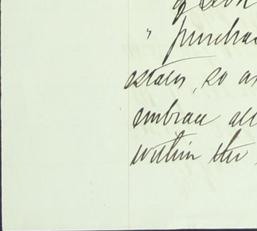 " purcha
estates, so as
embrace all
within the